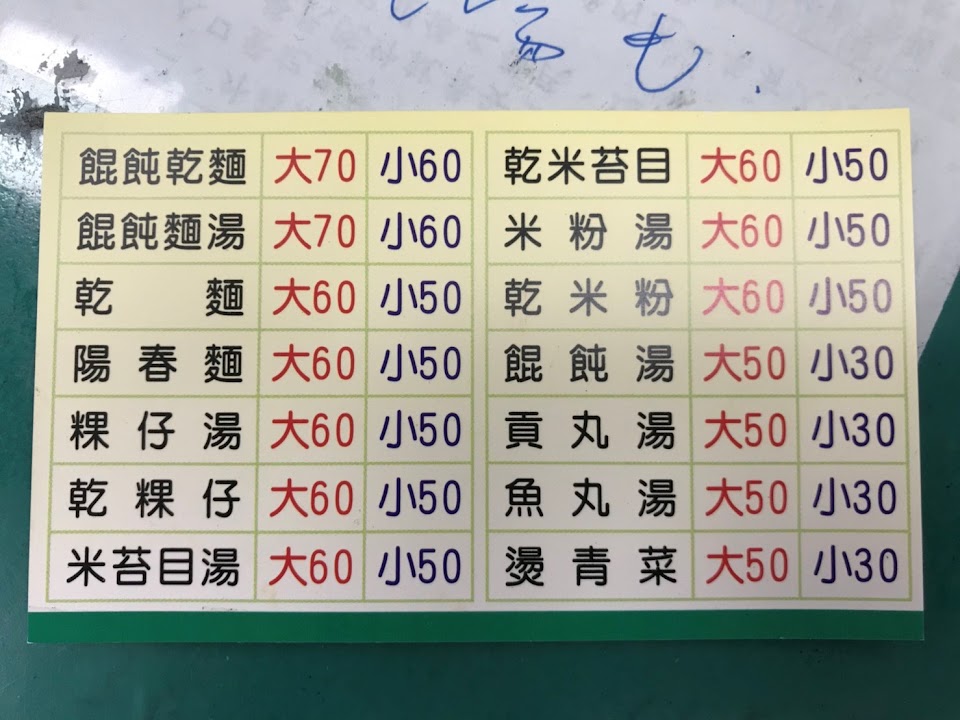 餛飩乾麵 大70 小60
餛飩麵湯 大70 小60
乾麵 大60 小50
陽春麵 大60 小50
粿仔湯 大60 小50
乾粿仔 大60 小50
米苔目湯 大60 小50
乾米苔目 大60 小50
米粉湯 大60 小50
乾米粉 大60 小50
餛飩湯 大50 小30
貢丸湯 大50 小30
魚丸湯 大50 小30
燙青菜 大50 小30